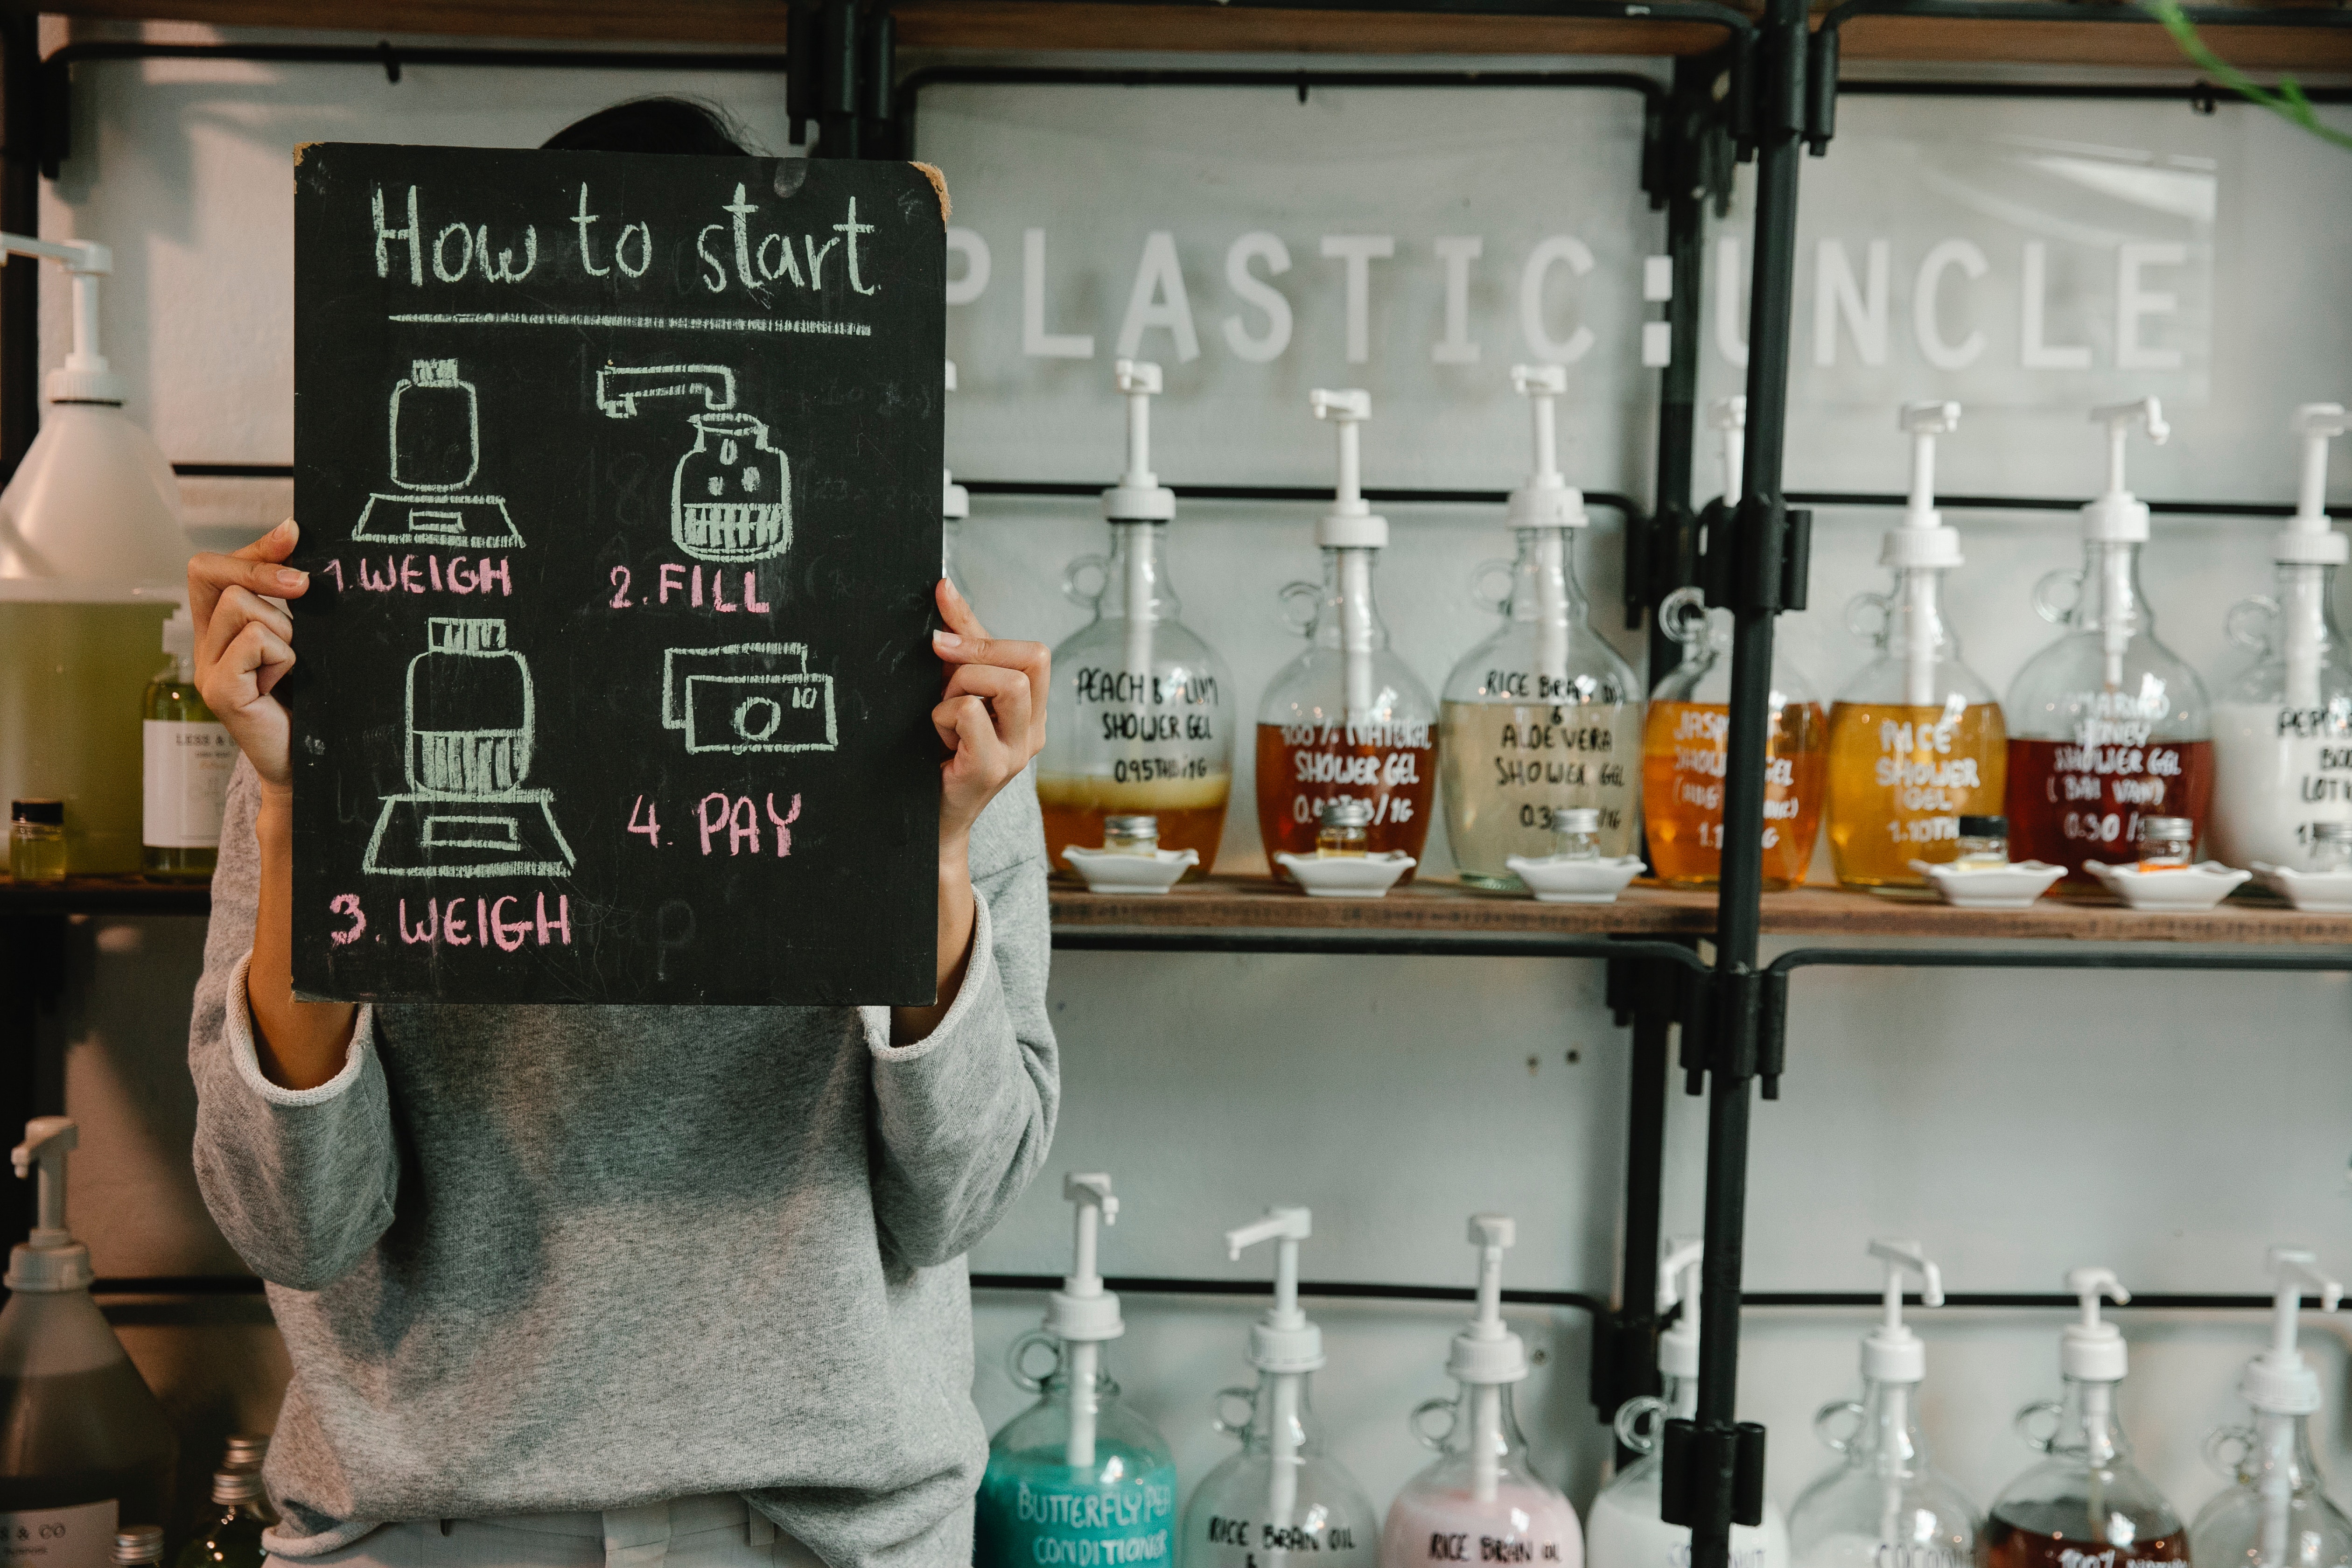 How to start
1. WEIGH
2. FILL
3. WEIGH
4. PAY
10
PLASTIC:UNCLE
PEACH
SHOWER GEL
0.95THB/1G
100% NATURAL
SHOWER GEL
RICE BRAN OIL
&
ALOE VERA
SHOWER GEL
SHOWER GEL
RICE
SHOWER
GEL
1.10TH
HONEY
SHOWER GEL
(BAI VAN)
0.30 /
LESS &
BUTTERFLY PEA
CONDITIONER
RICE BRAN OIL
RICE BRAN OIL
COCONUT
100%
& CO